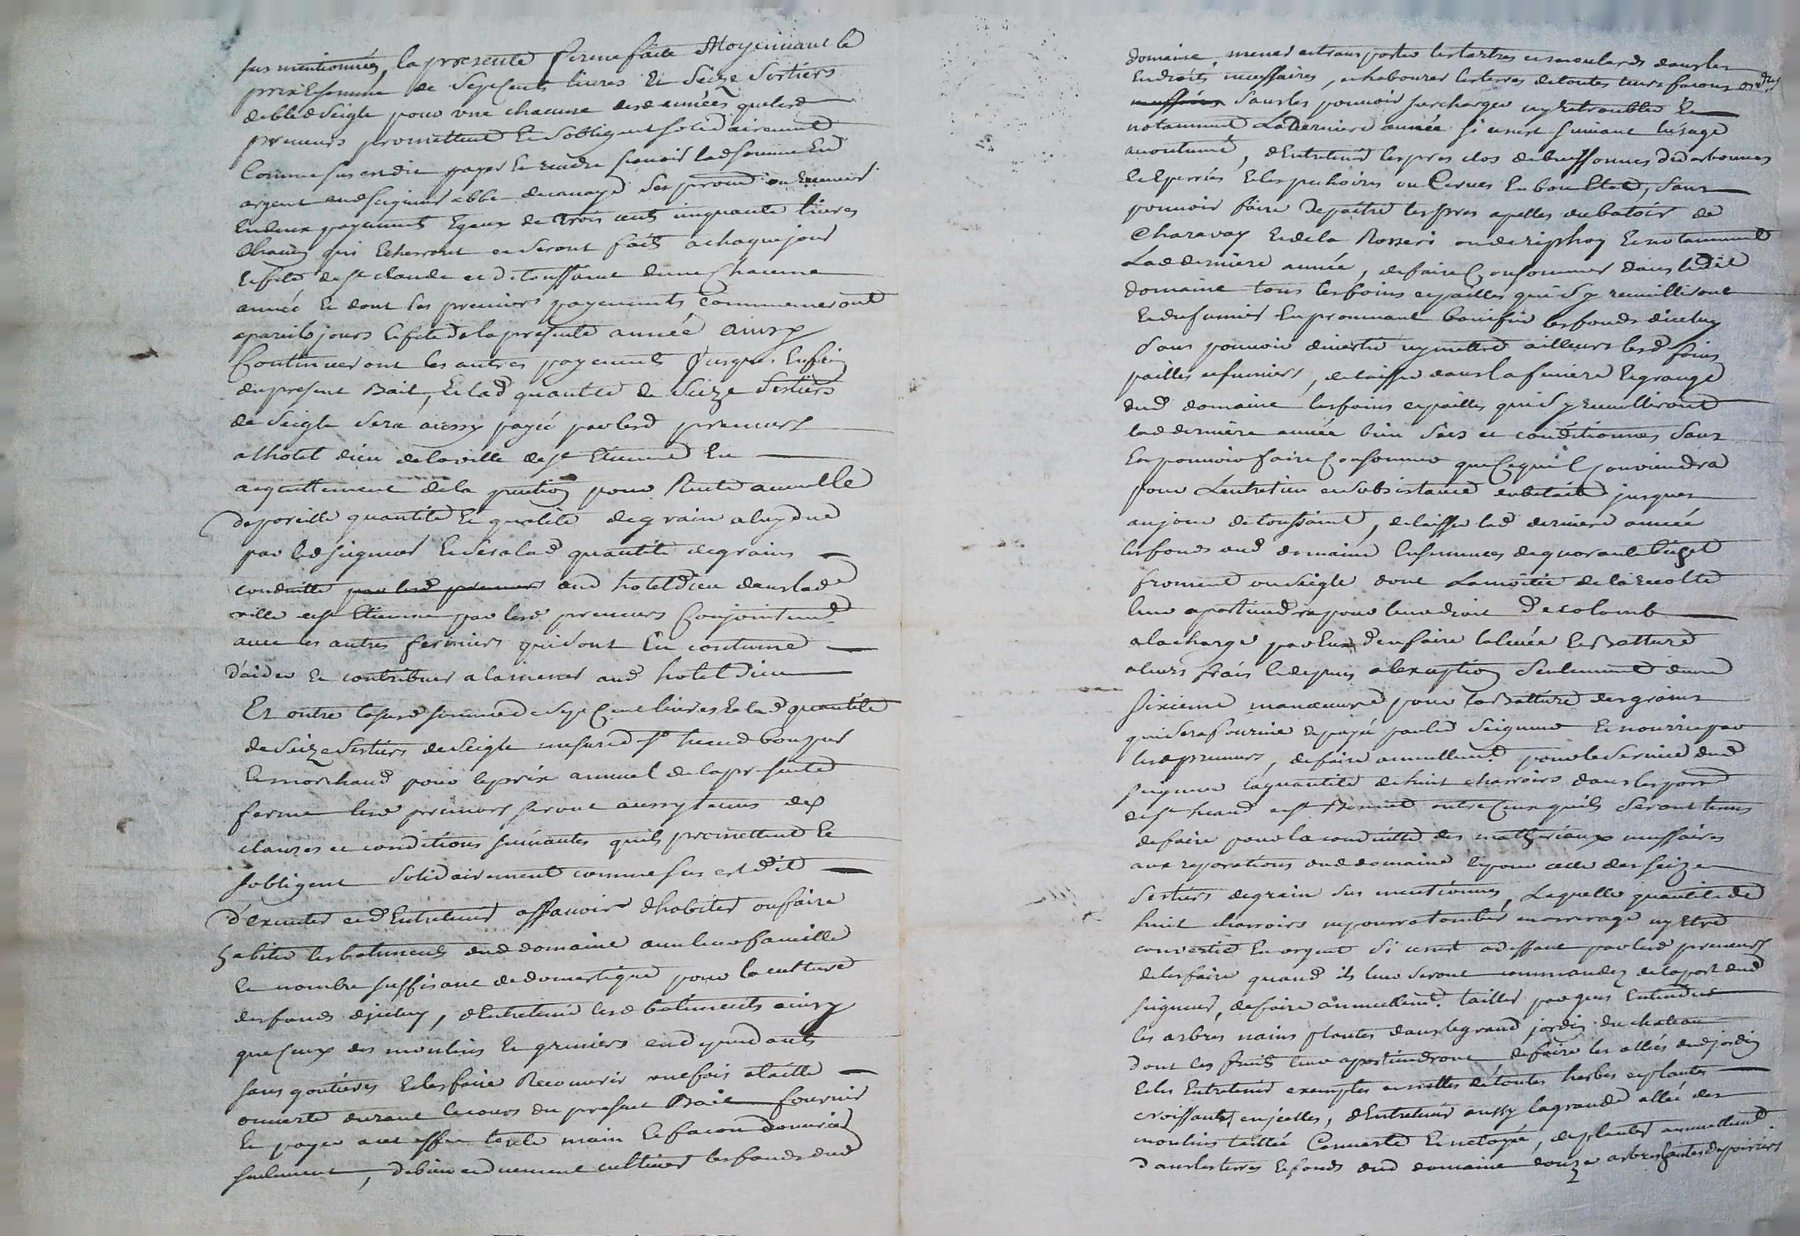 sus mentionnés, la presente ferme faite Moyennant le
prix et somme de sept cents livres et seize sestiers
de bled seigle pour une chacune desd années que lesd
preneurs promettent et sobligent solidairement
comme sus est dit payer et rendre scavoir lad somme en
argent aud seigneur abbé de
en deux payements egaux de trois cents cinquante livres
chacun qui echerront et seront faits a chaque jour
et fete de st claude et de toussaint dune chacune
année et dont les premiers payements commenceront
a pareils jours et fete de la presente année ainsy
continueront les autres payements jusques en fin
du present Bail, et lad quantité de seize sestiers
de seigle sera aussy payé par lesd preneurs
a lhotel dieu de la ville de st Etienne en
acquittement de la pention pour rente annuelle
de pareille quantité et qualité de grain a luy due
par led seigneur et sera lad quantité de grains
conduitte par lesd preneurs aud hoteldieu dans lad
ville de st Etienne par lesd preneurs conjointemt
avec les autres fermiers qui sont en coutume
d'aider et contribuer a la mener aud hotel dieu
Et outre lasusd somme de sept cent livres et lad quantité
de seize sestiers de seigle mesure de st heand bon pur
et marchand pour le prix annuel de la presente
ferme lesd preneurs seront aussy tenus des
clauzes et conditions suivantes quils promettent et
sobligent solidairement comme sus est dit
d'executer et d'Entretenir assavoir dhabiter ou faire
habiter les batiments dud domaine avec leur famille
et nombre suffisant de domestique pour la culture
des fonds d'jceluy, d'Entretenir lesd batiments ainsy
que ceux des moulins et greniers en dependants
sans goutieres et les faire Recouvrir une fois a taille
ouverte durant le cours du present Bail fournir
et payer a cet effet toute main et facon douvrier
seulement, de bien et duement cultiver les fonds dud
domaine, mener et transporter les tertres et moulards dans les
Endroits necessaires, et labourer les terres de toutes leurs facons
sans les pouvoir surcharger ny retroubler et
notamment La Derniere année si ce nest suivant lusage
accoutumé, d'Entretenir les pres clos de buissonnés
et les pechoires ou Serves en bon Etat, sans
pouvoir faire depaitre les pres apelles du batoir de
Charavay et de la Rosseri ou de riphoy et notamment
Lad derniere année, de faire Consommer dans ledit
domaine tous les foins et pailles qui s'y reuilliront
et du fumier en provenant bonifier les fonds d'iceluy
sans pouvoir divertir ny mettre ailleurs lesd foins
pailles et fumiers, de laisser dans la feniere et grange
dud domaine les foins et pailles qui s'y reuilliront
lad derniere année bien secs et conditionnés sans
en pouvoir faire consommer que ce qu'il conviendra
pour Lentretien et subsistance du betail jusques
au jour de toussaint, de laisser lad derniere année
les fonds aud domaine Ensemencés de
froment ou seigle dont La moitié de la recolte
leur apartiendra pour leur droit de colomb
a la charge par Eux d'en faire la levée et Batture
a leurs frais et depens a lexception seulement dune
sixieme manoeuvre pour la Batture des grains
qui sera fournie et payé par led seigneur et nourrie par
lesd preneurs, de faire annuellemt pour le service dud
seigneur la quantité de huit charroirs dans les ports
de st heand et st Bonnet outre ceux quils seront tenus
de faire pour la conduitte des matheriaux necessaires
aux reparations dud domaine et pour celle des seize
sestiers de grain sus mentionnés, Laquelle quantité de
huit charroirs ne pourra tomber en arrerage ny etre
convertie en argent si ce nest a deffaut par lesd preneurs
de les faire quand ils leur seront commandez de la part dud
seigneur, de faire annuellemt tailler par gens Entendus
les arbres nains plantés dans le grand jardin du chateau
dont les fruits leur apartiendront de faire les allées dud jardin
et les Entretenir exemptes et nettes de toutes herbes et plantes
croissantes en jcelles, d'Entretenir aussy la grande allée des
moulins taillée Couverte et netoyée, de planter annuellement
dans les terres et fonds dud domaine douze arbres